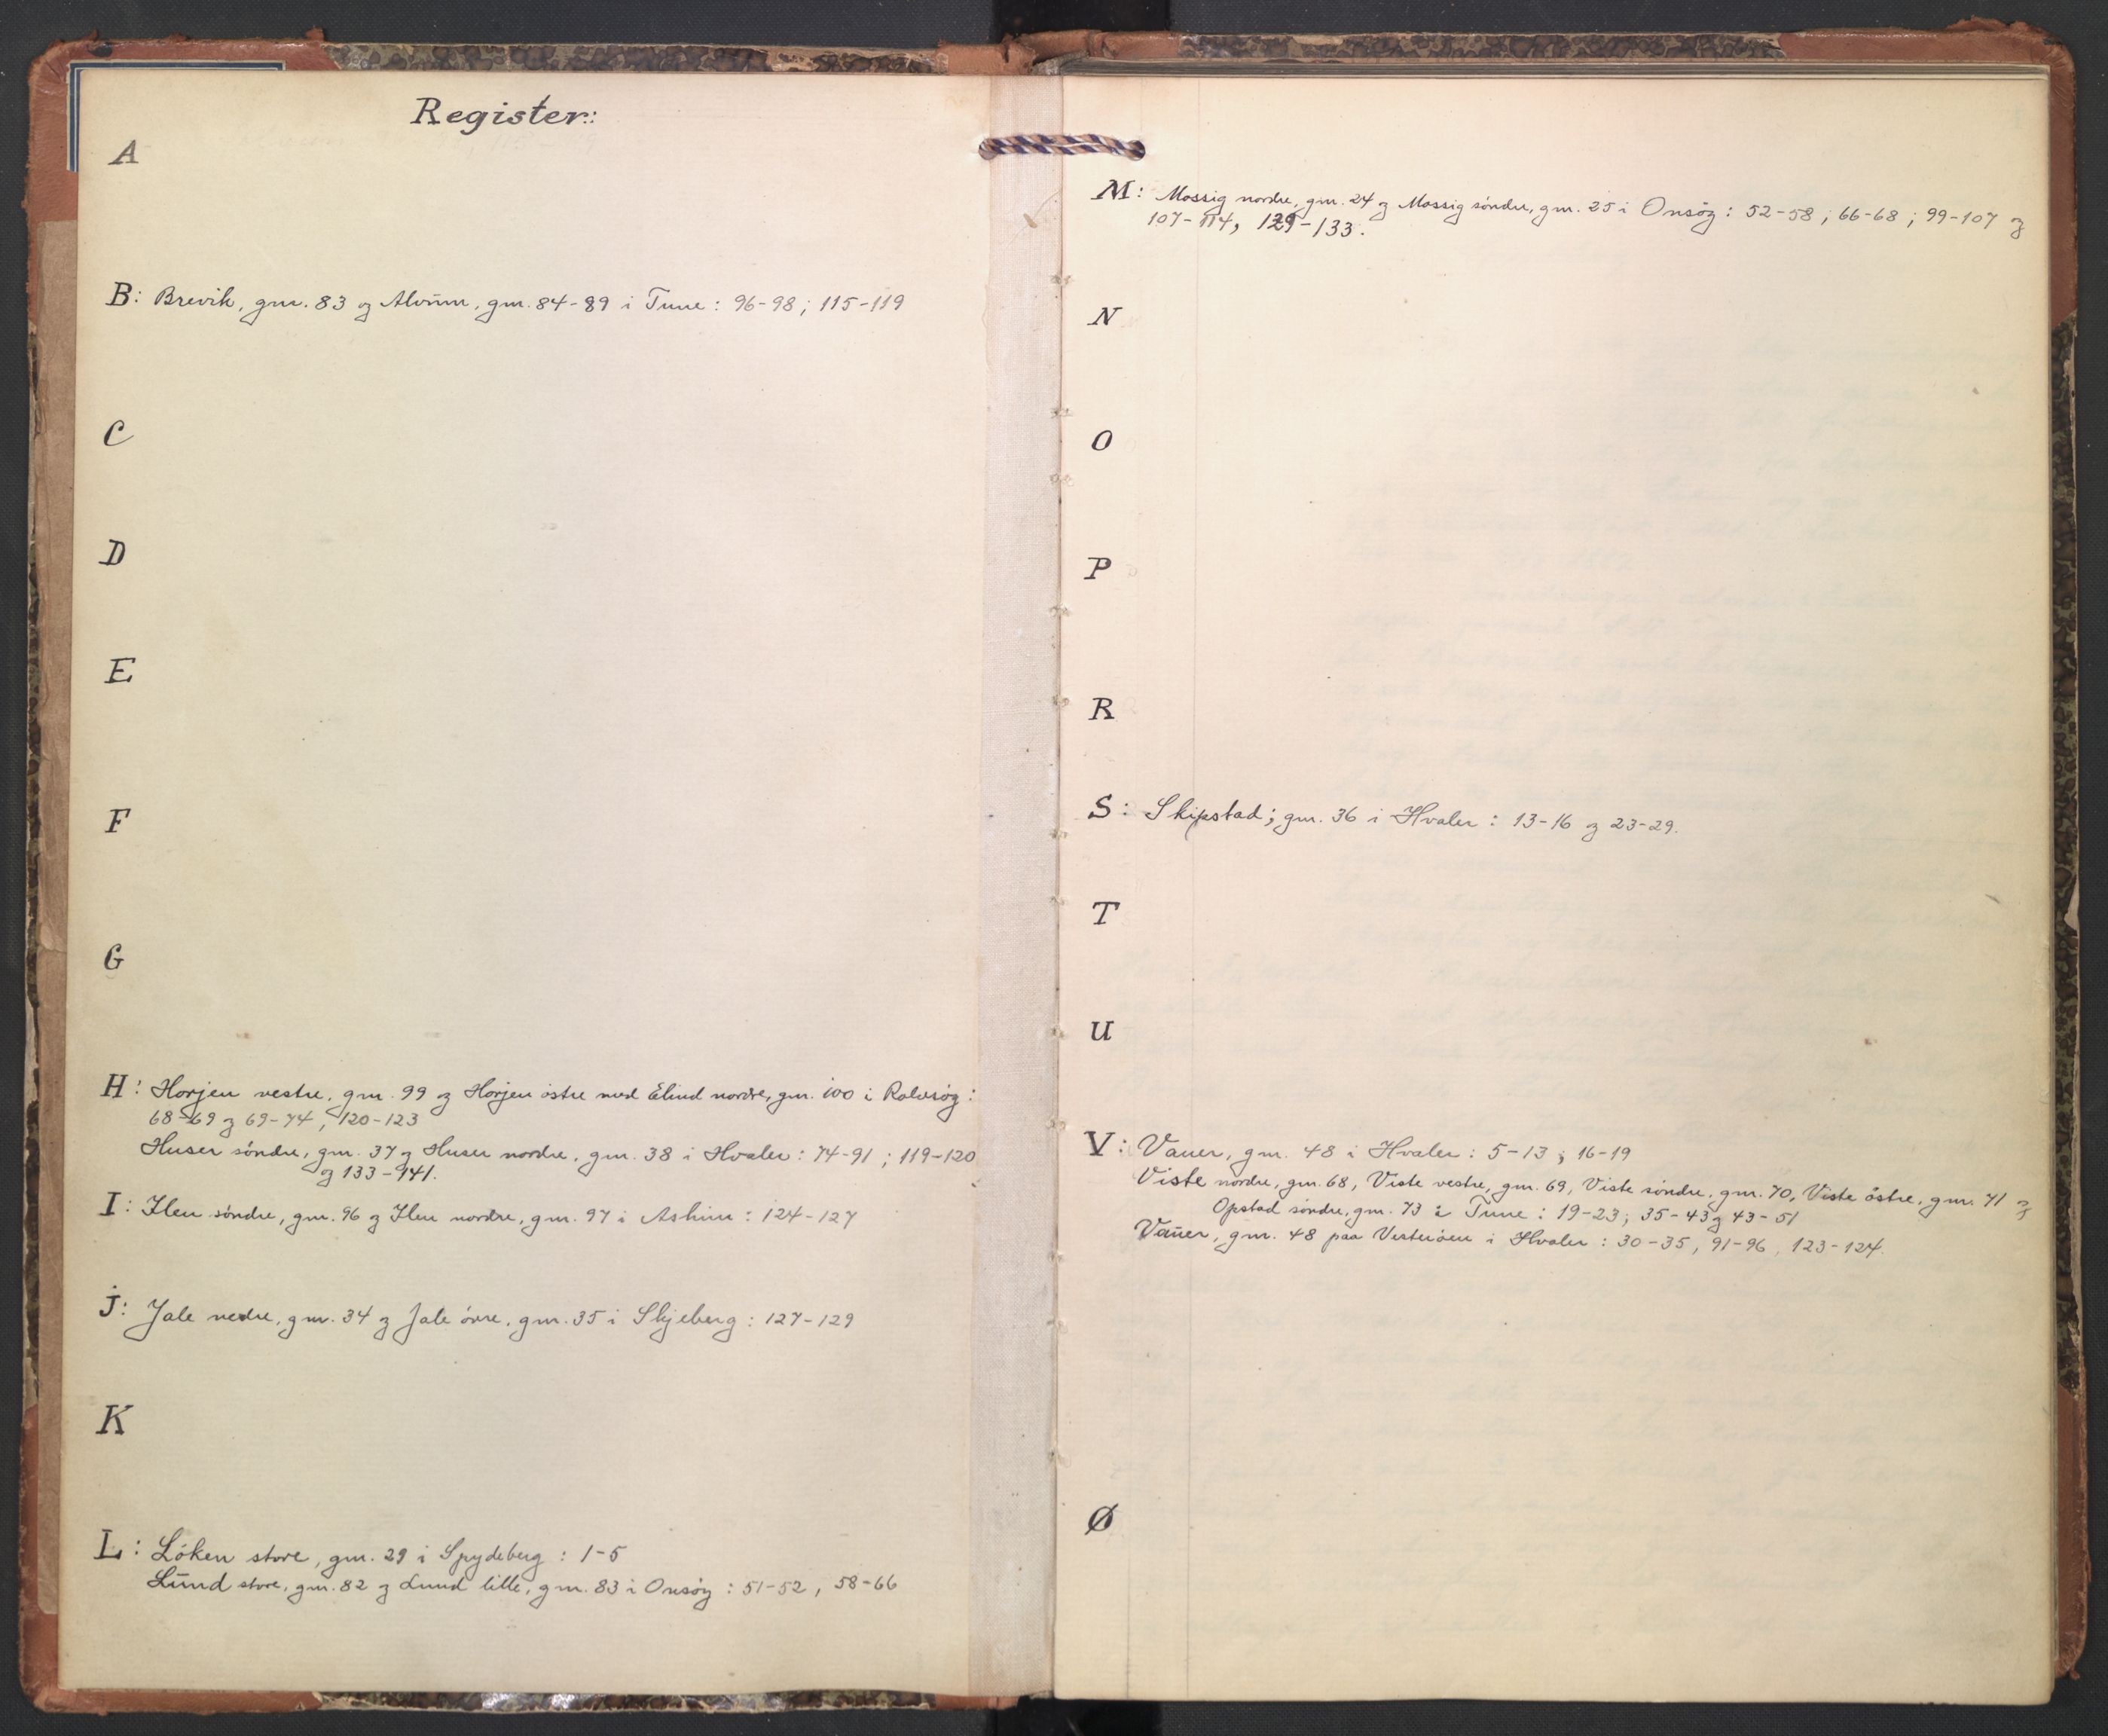 Register:
A
B: Brevik, gnr. 83 og Alvum, gnr. 84-89 i Tune: 96-98; 115-119
C
D
E
F
G
H: Horjen vestre, gnr. 99 og Horjen östre med Elind nordre, gnr. 100 i Rolvsöy:
68-69 og 69-74, 120-123
Huser söndre, gnr. 37 og Huser nordre, gnr. 38 i Hvaler: 74-91; 119-120
og 133-141.
I: Ilen söndre, gnr. 96 og Ilen nordre, gnr. 97 i Askim: 124-127
J: Jale nedre, gnr. 34 og Jale övre, gnr. 35 i Skjeberg: 127-129
K
L: Löken store, gnr. 29 i Spydeberg: 1-5
Lund store, gnr. 82 og Lund lille, gnr. 83 i Onsöy: 51-52, 58-66
M: Mossig nordre, gnr. 24 og Mossig söndre, gnr. 25 i Onsöy: 52-58; 66-68; 99-107 og
107-114, 129-133.
N
O
P
R
S: Skipstad; gnr. 36 i Hvaler: 13-16 og 23-29.
T
U
V: Vauer, gnr. 48 i Hvaler: 5-13; 16-19
Viste nordre, gnr. 68, Viste vestre, gnr. 69, Viste söndre, gnr. 70, Viste östre, gnr. 71 og
Opstad söndre, gnr. 73 i Tune: 19-23; 35-43 og 43-51
Vauer, gnr. 48 paa Vesteröen i Hvaler: 30-35, 91-96, 123-124.
Ø